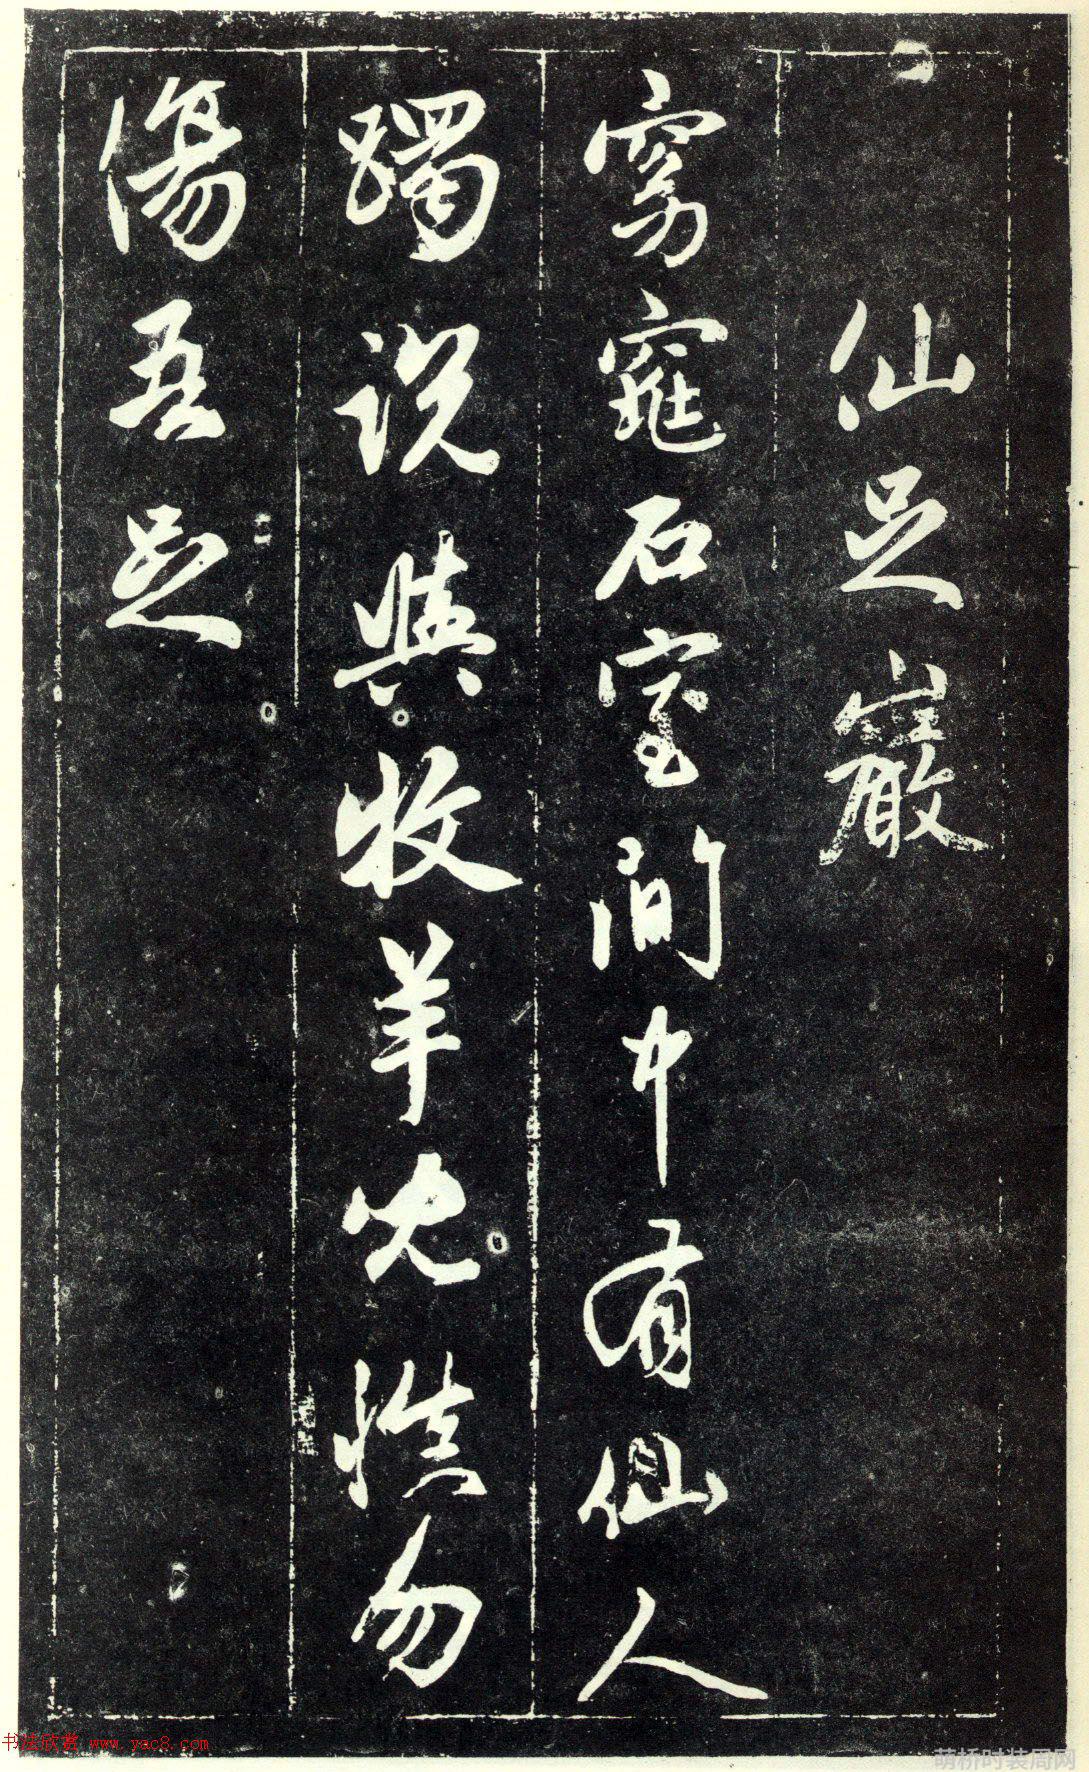 仙足巖
窈窕石室間中有仙人
躅說與牧羊兒慎勿
傷吾足
书法欣赏 www.yac8.com
萌桥时装周网